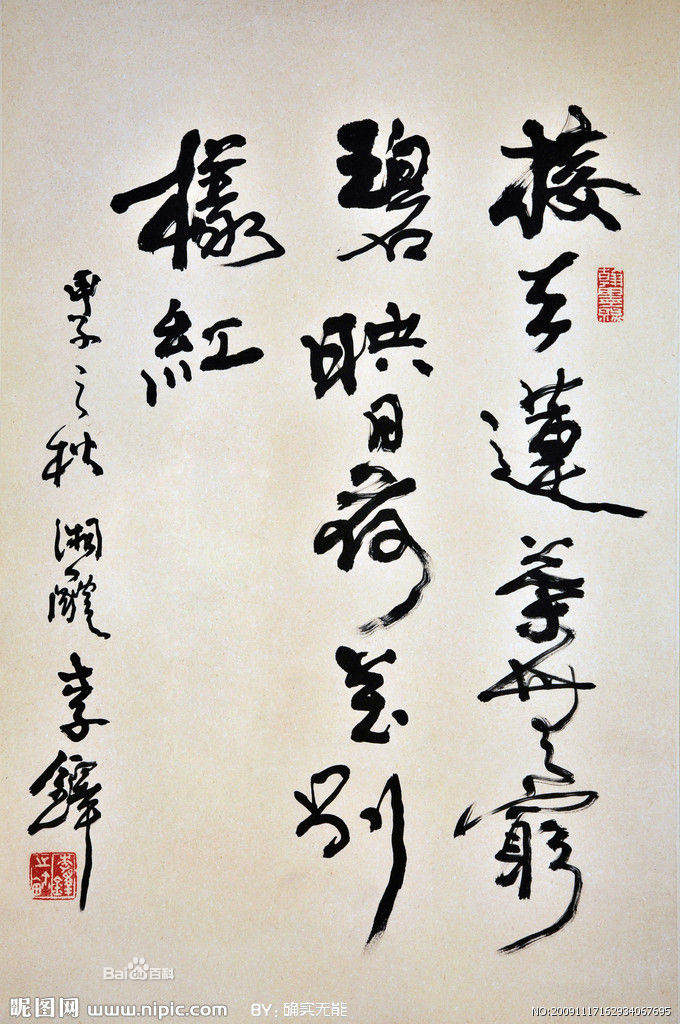 接天蓮葉無窮
碧映日荷花別
樣紅
甲子之秋湘醴李鐸
Bai百科
昵图网 www.nipic.com BY：确实无能
NO:20091117162934067695